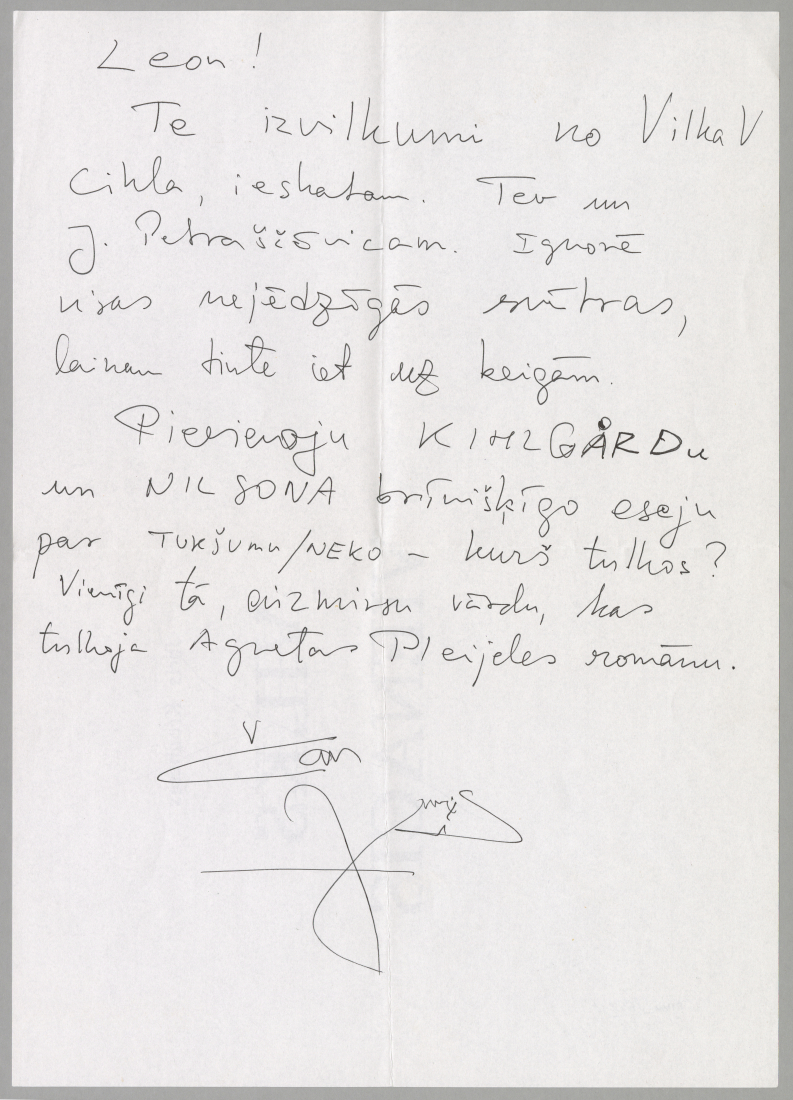 Leon!
Te izvilkumi no Vilka V
Cikla, ieskatam. Tev un
J. Petraškēvicam. Ignorē
visas nejēdzīgās svītras,
laikam tinte iet uz beigām.
Pievienoju KIHLGÅRDu
un NILSONA brīnišķīgo eseju
par TUKŠUMU/NEKO – kurš tulkos?
Vienīgi tā, aizmirsu vārdu, kas
tulkoja Agnetas Pleijeles romānu.